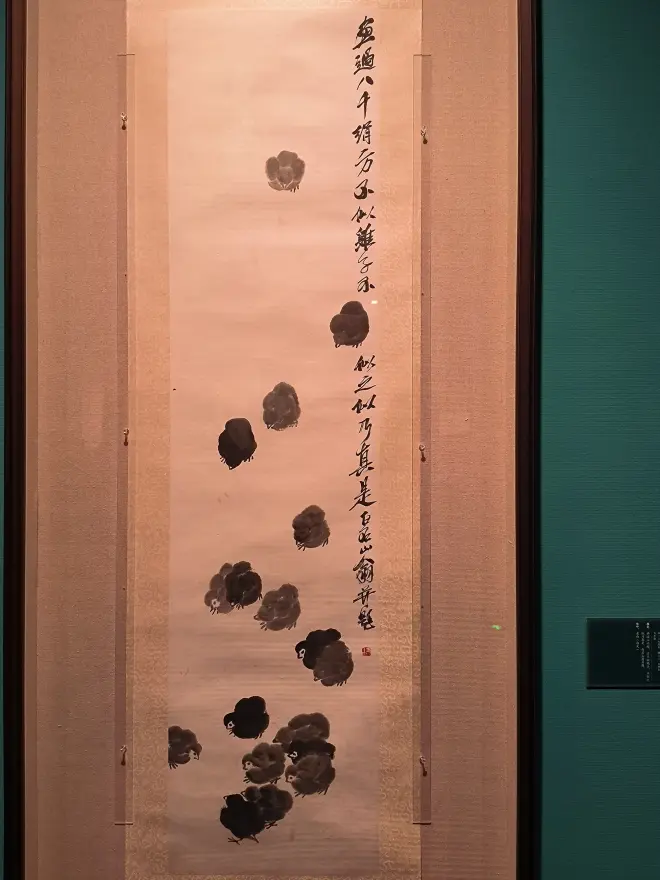 畫過八千絹方不似雞子不似之似乃真是白石山翁并題